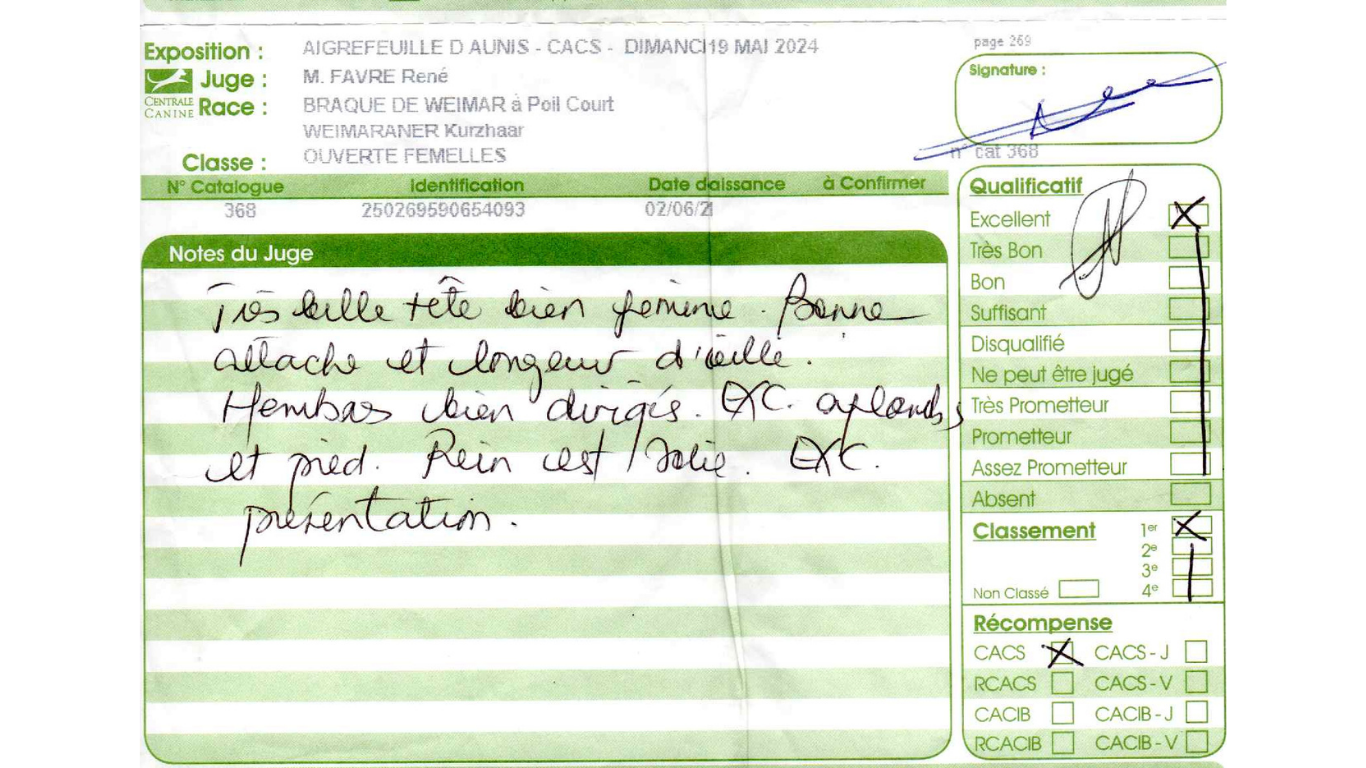 Exposition : AIGREFEUILLE D AUNIS - CACS - DIMANCI19 MAI 2024
page 269
Juge : M. FAVRE René
Signature :
CENTRALE CANINE
Race : BRAQUE DE WEIMAR à Poil Court
WEIMARANER Kurzhaar
Classe : OUVERTE FEMELLES
n° cat 368
N° Catalogue Identification Date daissance à Confirmer
368 250269590654093 02/06/21
Notes du Juge
Très belle tête bien féminine. Bonne
attache et longeur d'oeille.
Membres bien dirigés. EXC. aplombs
et pied. Rein est solie. EXC.
présentation.
Qualificatif
Excellent
Très Bon
Bon
Suffisant
Disqualifié
Ne peut être jugé
Très Prometteur
Prometteur
Assez Prometteur
Absent
Classement 1er
2e
3e
Non Classé 4e
Récompense
CACS CACS - J
RCACS CACS - V
CACIB CACIB - J
RCACIB CACIB - V